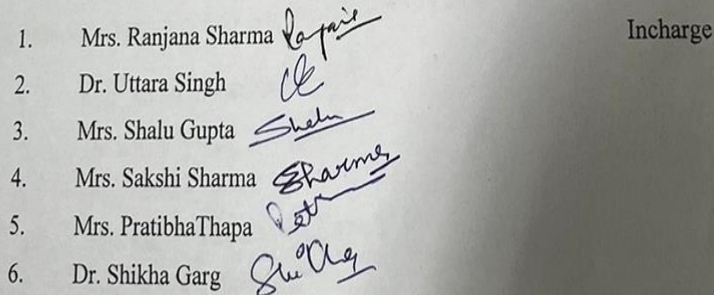 1. Mrs. Ranjana Sharma Ranjana Incharge
2. Dr. Uttara Singh
3. Mrs. Shalu Gupta Shalu
4. Mrs. Sakshi Sharma Sharma
5. Mrs. PratibhaThapa
6. Dr. Shikha Garg